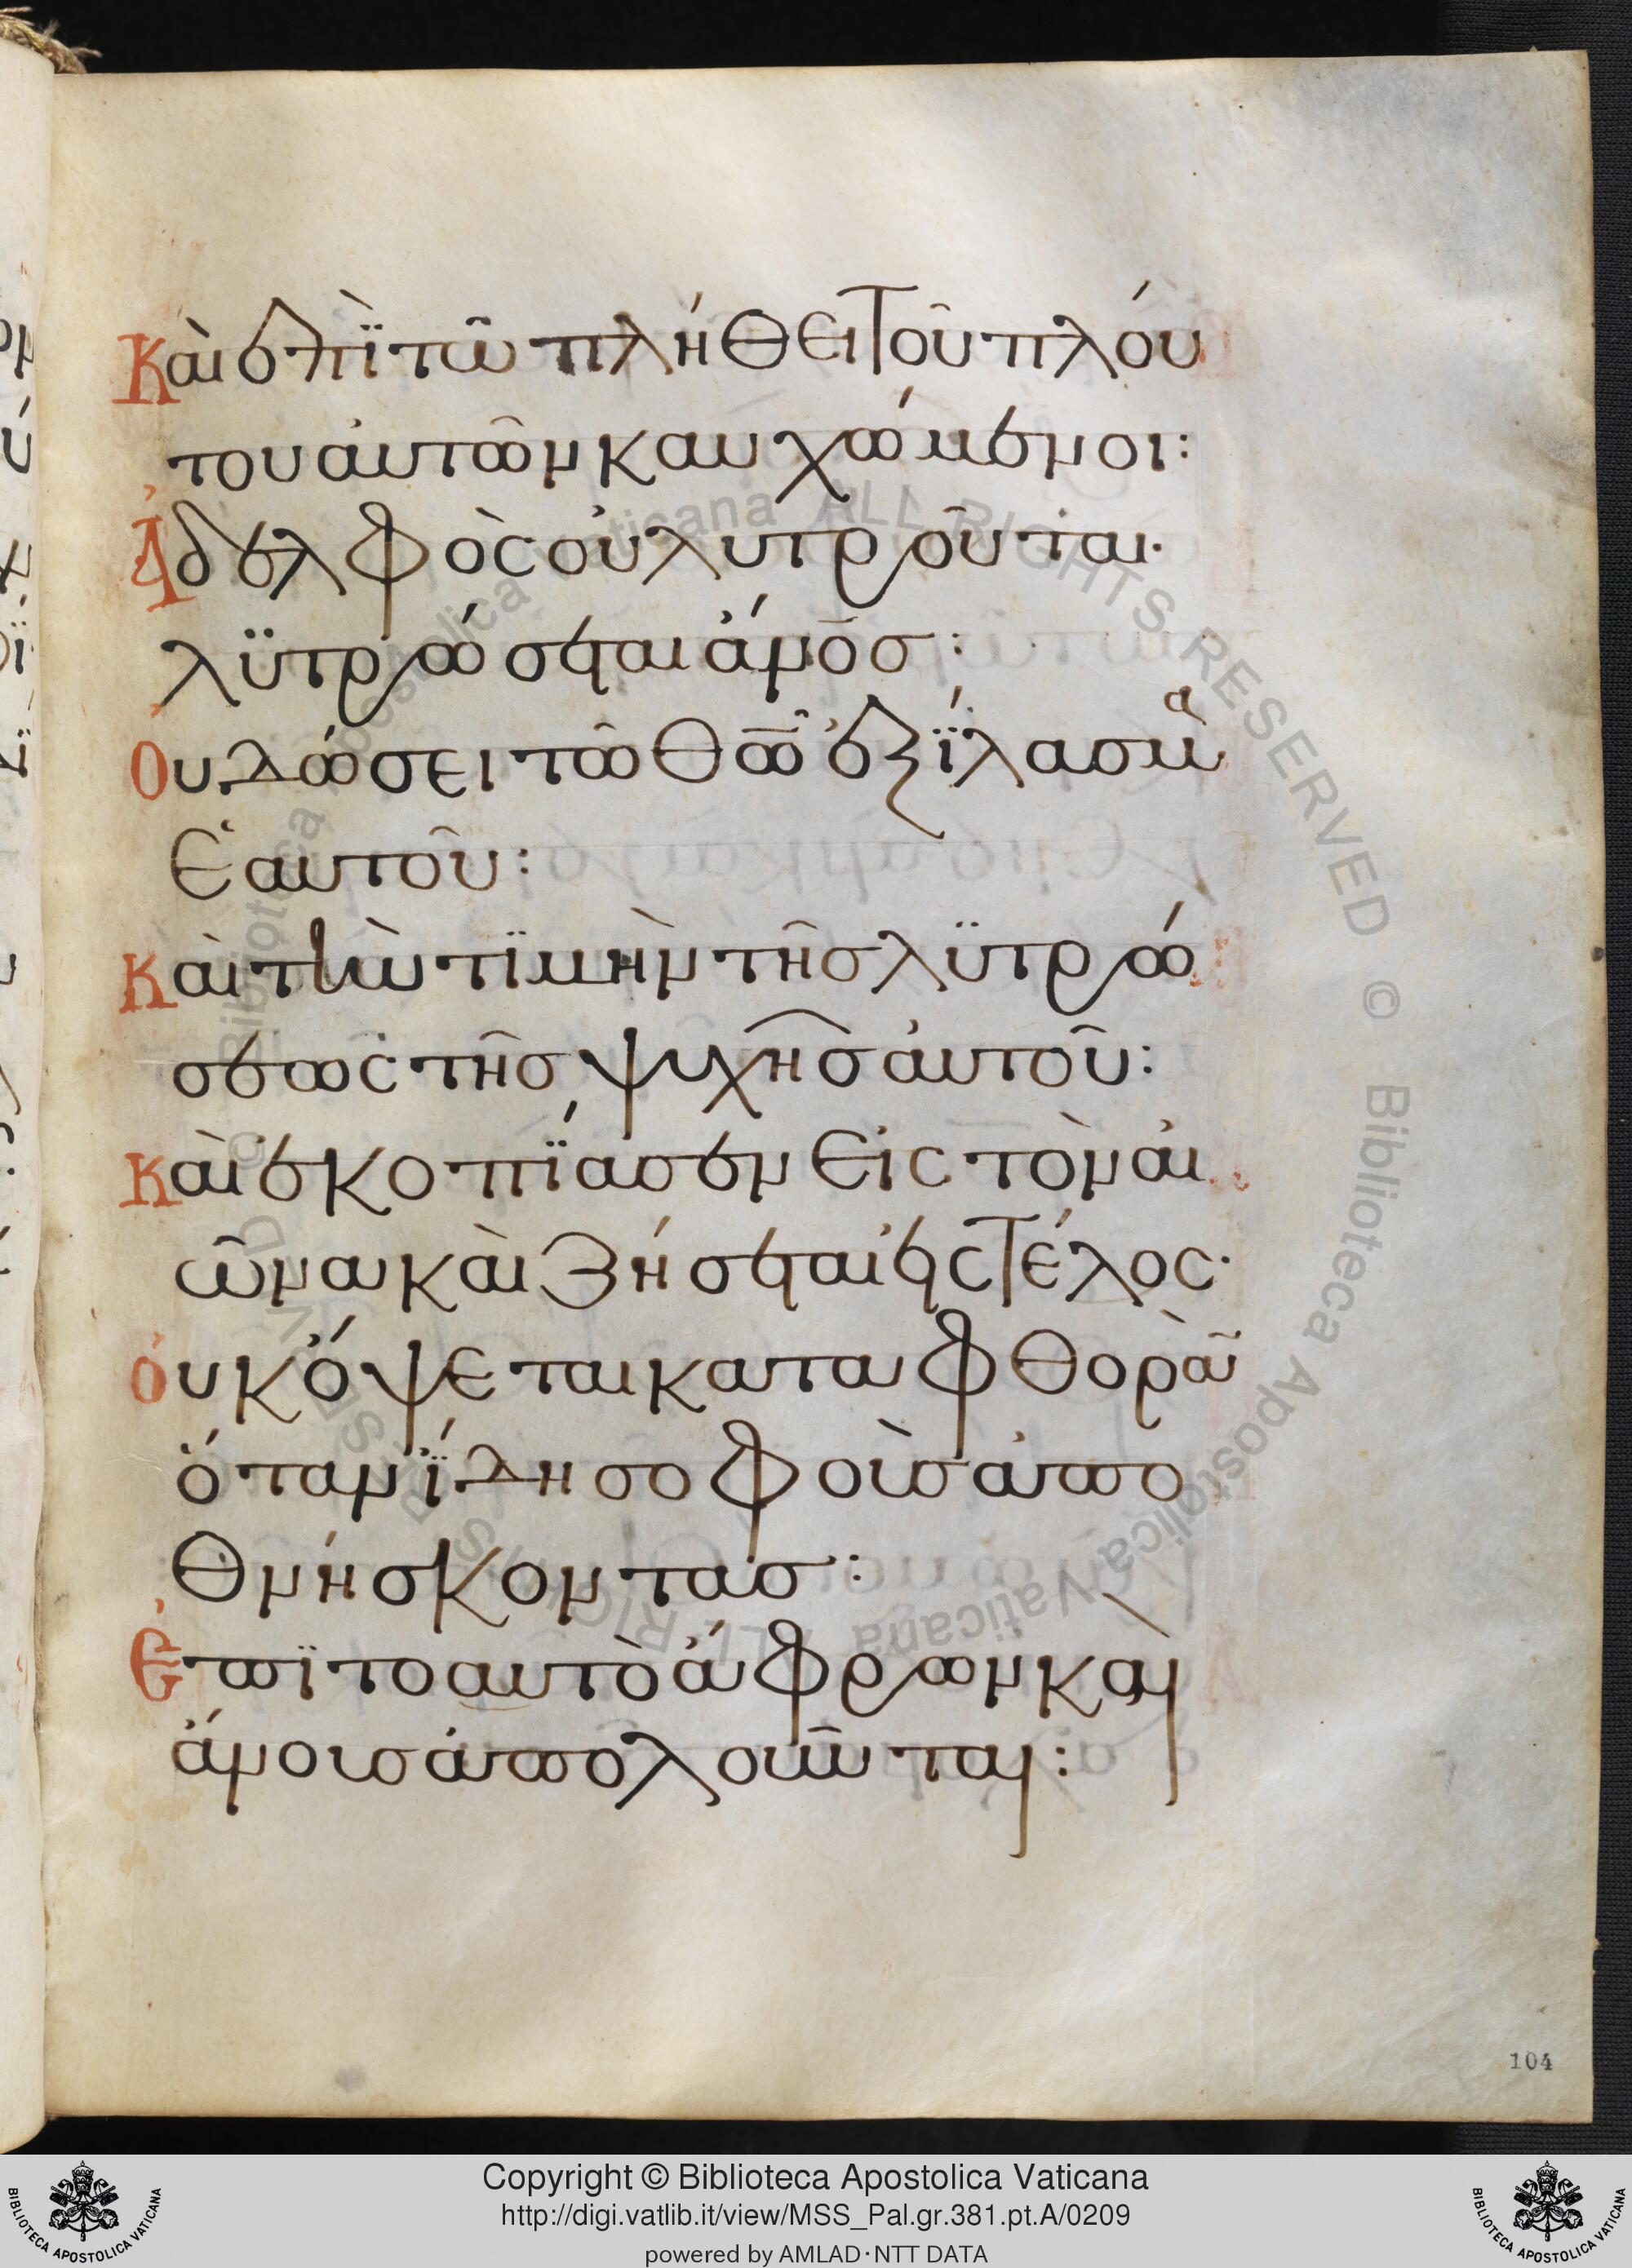 Καὶ ἐπῒ τῶ πλήθει τοῦ πλού
του ἀυτῶν καυχώμενοι:
Ἀδελφὸς οὐ λυτροῦται·
λϋτρώσεται ἄν̅ο̅σ̅:
Ὀυ δώσει τῶ Θ̅ῶ̅ ἐξΐλασμα
ἑαυτοῦ:
Καὶ τὴν τϊμὴν τῆσ λϋτρώ
σεως τῆσ ψυχῆσ ἀυτοῦ:
Καὶ ἐκοπΐασεν εἰς τὸν ἀι
ῶνα καὶ ζήσεται εἰς τέλος·
ὀυκ ὄψεται καταφθορὰν
ὅταν ΐδη σοφοὺσ ἀπο
θνήσκοντασ:
Ἐπϊτοαυτὸ ἄφρων καὶ
ἄνουσ ἀπολοῦνται:
104
Copyright © Biblioteca Apostolica Vaticana
http://digi.vatlib.it/view/MSS_Pal.gr.381.pt.A/0209
powered by AMLAD·NTT DATA
BIBLIOTECA APOSTOLICA VATICANA
BIBLIOTECA APOSTOLICA VATICANA
© Biblioteca Apostolica Vaticana ALL RIGHTS RESERVED
© Biblioteca Apostolica Vaticana ALL RIGHTS RESERVED